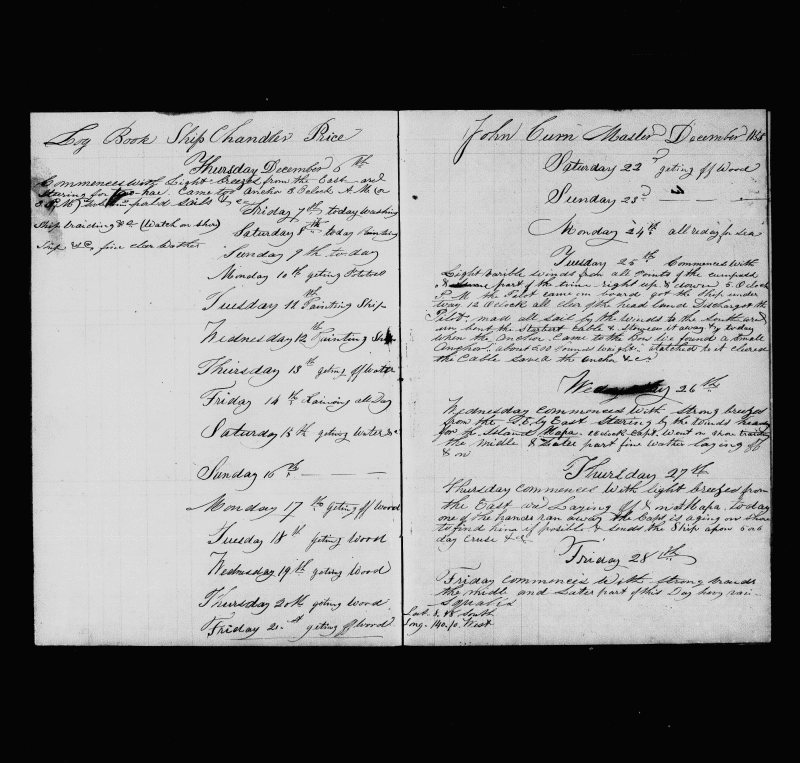 Log Book Ship Chandler Price
Thursday December 6th
Commences with Light breezes from the East and
stearing for hae. Came too ancho 8 Oclock A. M (&
3 P. M) sails & c
Friday 7th today washing
Ship traiding &c (Watch on shor
Saturday 8th today Painting
Ship &c, fine clear wather
Sunday 9th to day
Monday 10th geting Potatoes
Tuesday 11th Painting Ship
Wednesday 12th Painting Ship
Thursday 13th geting off Water
Friday 14th Raining all Day
Saturday 15th geting Water &c
Sunday 16th — —
Monday 17th geting off Wood
Tuesday 18th geting Wood
Wednesday 19th geting Wood
Thursday 20th geting Wood
Friday 21st geting off Wood
John Curn Master December
Saturday 22d geting off Wood
Sunday 23d — — —
Monday 24th all ready for Sea
Tuesday 25th Commences with
Light varible winds from all Points of the cumpass
& part of the time right up & down 5. O clock
P. M. the Pilot came on board got the Ship under
way 12 oclock all cler of the head Land Discharged the
Pilot. mad all sail by the winds to the South and
un bent the Starbert Cable & stowed it away & y today
when the anchor came to the bow we found a small
Anchor about 200 pounds weight. atatched to it clered
the Cable saved the ancho & c
Wednesday 26th
Wednesday commences with strong breezes
from the S. E. by East Stering by the winds
for Island Mapa. oclock Capt. went on shore traiding
the midle & Later part fine wather laying off
& on
Thursday 27th
Thursday commences with light breezes from
the East and Laying off & on at Mapa. to day
one of the hands ran away the Capt. is a going on shore
to find him if posible & sends the Ship apon 5 or 6
day Cruse & c
Friday 28th
Friday commences with strong trades
the midle and Later part of this Day hevy rain
Squalls
Lat. 8. 48 South
Long. 140. 10. West